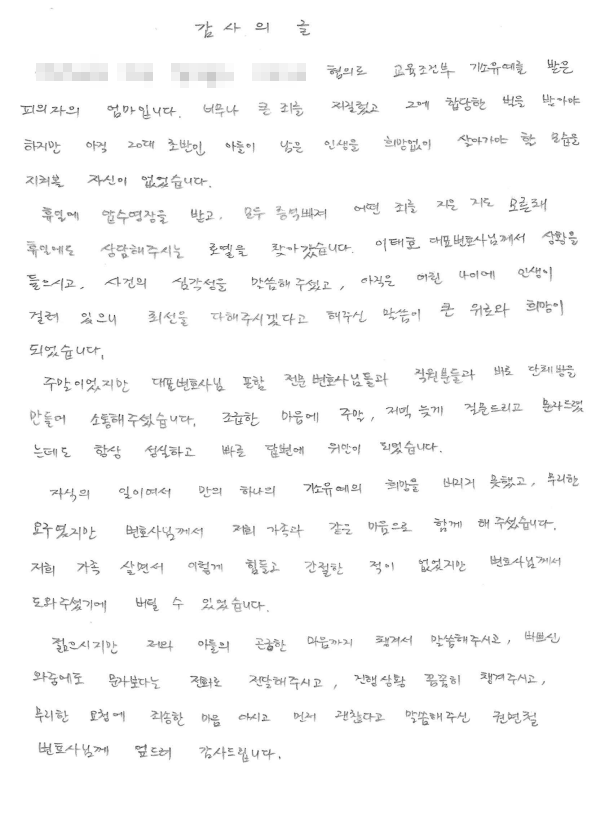 감사의 글
혐의로 교육조건부 기소유예를 받은
피의자의 엄마입니다. 너무나 큰 죄를 저질렀고 그에 합당한 벌을 받아야
하지만 아직 20대 초반인 아들이 남은 인생을 희망없이 살아가야 할 모습을
지켜볼 자신이 없었습니다.
휴일에 압수영장을 받고, 모두 충격빠져 어떤 죄를 지은 지도 모른채
휴일에도 상담해주시는 로엘을 찾아갔습니다. 이태호 대표변호사님께서 상황을
들으시고, 사건의 심각성을 말씀해 주셨고, 아직은 어린 나이에 인생이
걸려 있으니 최선을 다해주시겠다고 해주신 말씀이 큰 위로와 희망이
되었습니다.
주말이었지만 대표변호사님 포함 전문 변호사님들과 직원분들과 바로 단체방을
만들어 소통해주셨습니다. 조급한 마음에 주말, 저녁 늦게 질문드리고 문자드렸
는데도 항상 성실하고 빠른 답변에 위안이 되었습니다.
자식의 일이여서 만의 하나의 기소유예의 희망을 버리기 못했고, 무리한
요구였지만 변호사님께서 저희 가족과 같은 마음으로 함께 해 주셨습니다.
저희 가족 살면서 이렇게 힘들고 간절한 적이 없었지만 변호사님께서
도와주셨기에 버틸 수 있었습니다.
젊으시지만 저와 아들의 곤궁한 마음까지 챙겨서 말씀해주시고, 바쁘신
와중에도 문자보다는 전화로 전달해주시고, 진행상황 꼼꼼히 챙겨주시고,
무리한 요청에 죄송한 마음 아시고 먼저 괜찮다고 말씀해주신 권연철
변호사님께 엎드려 감사드립니다.